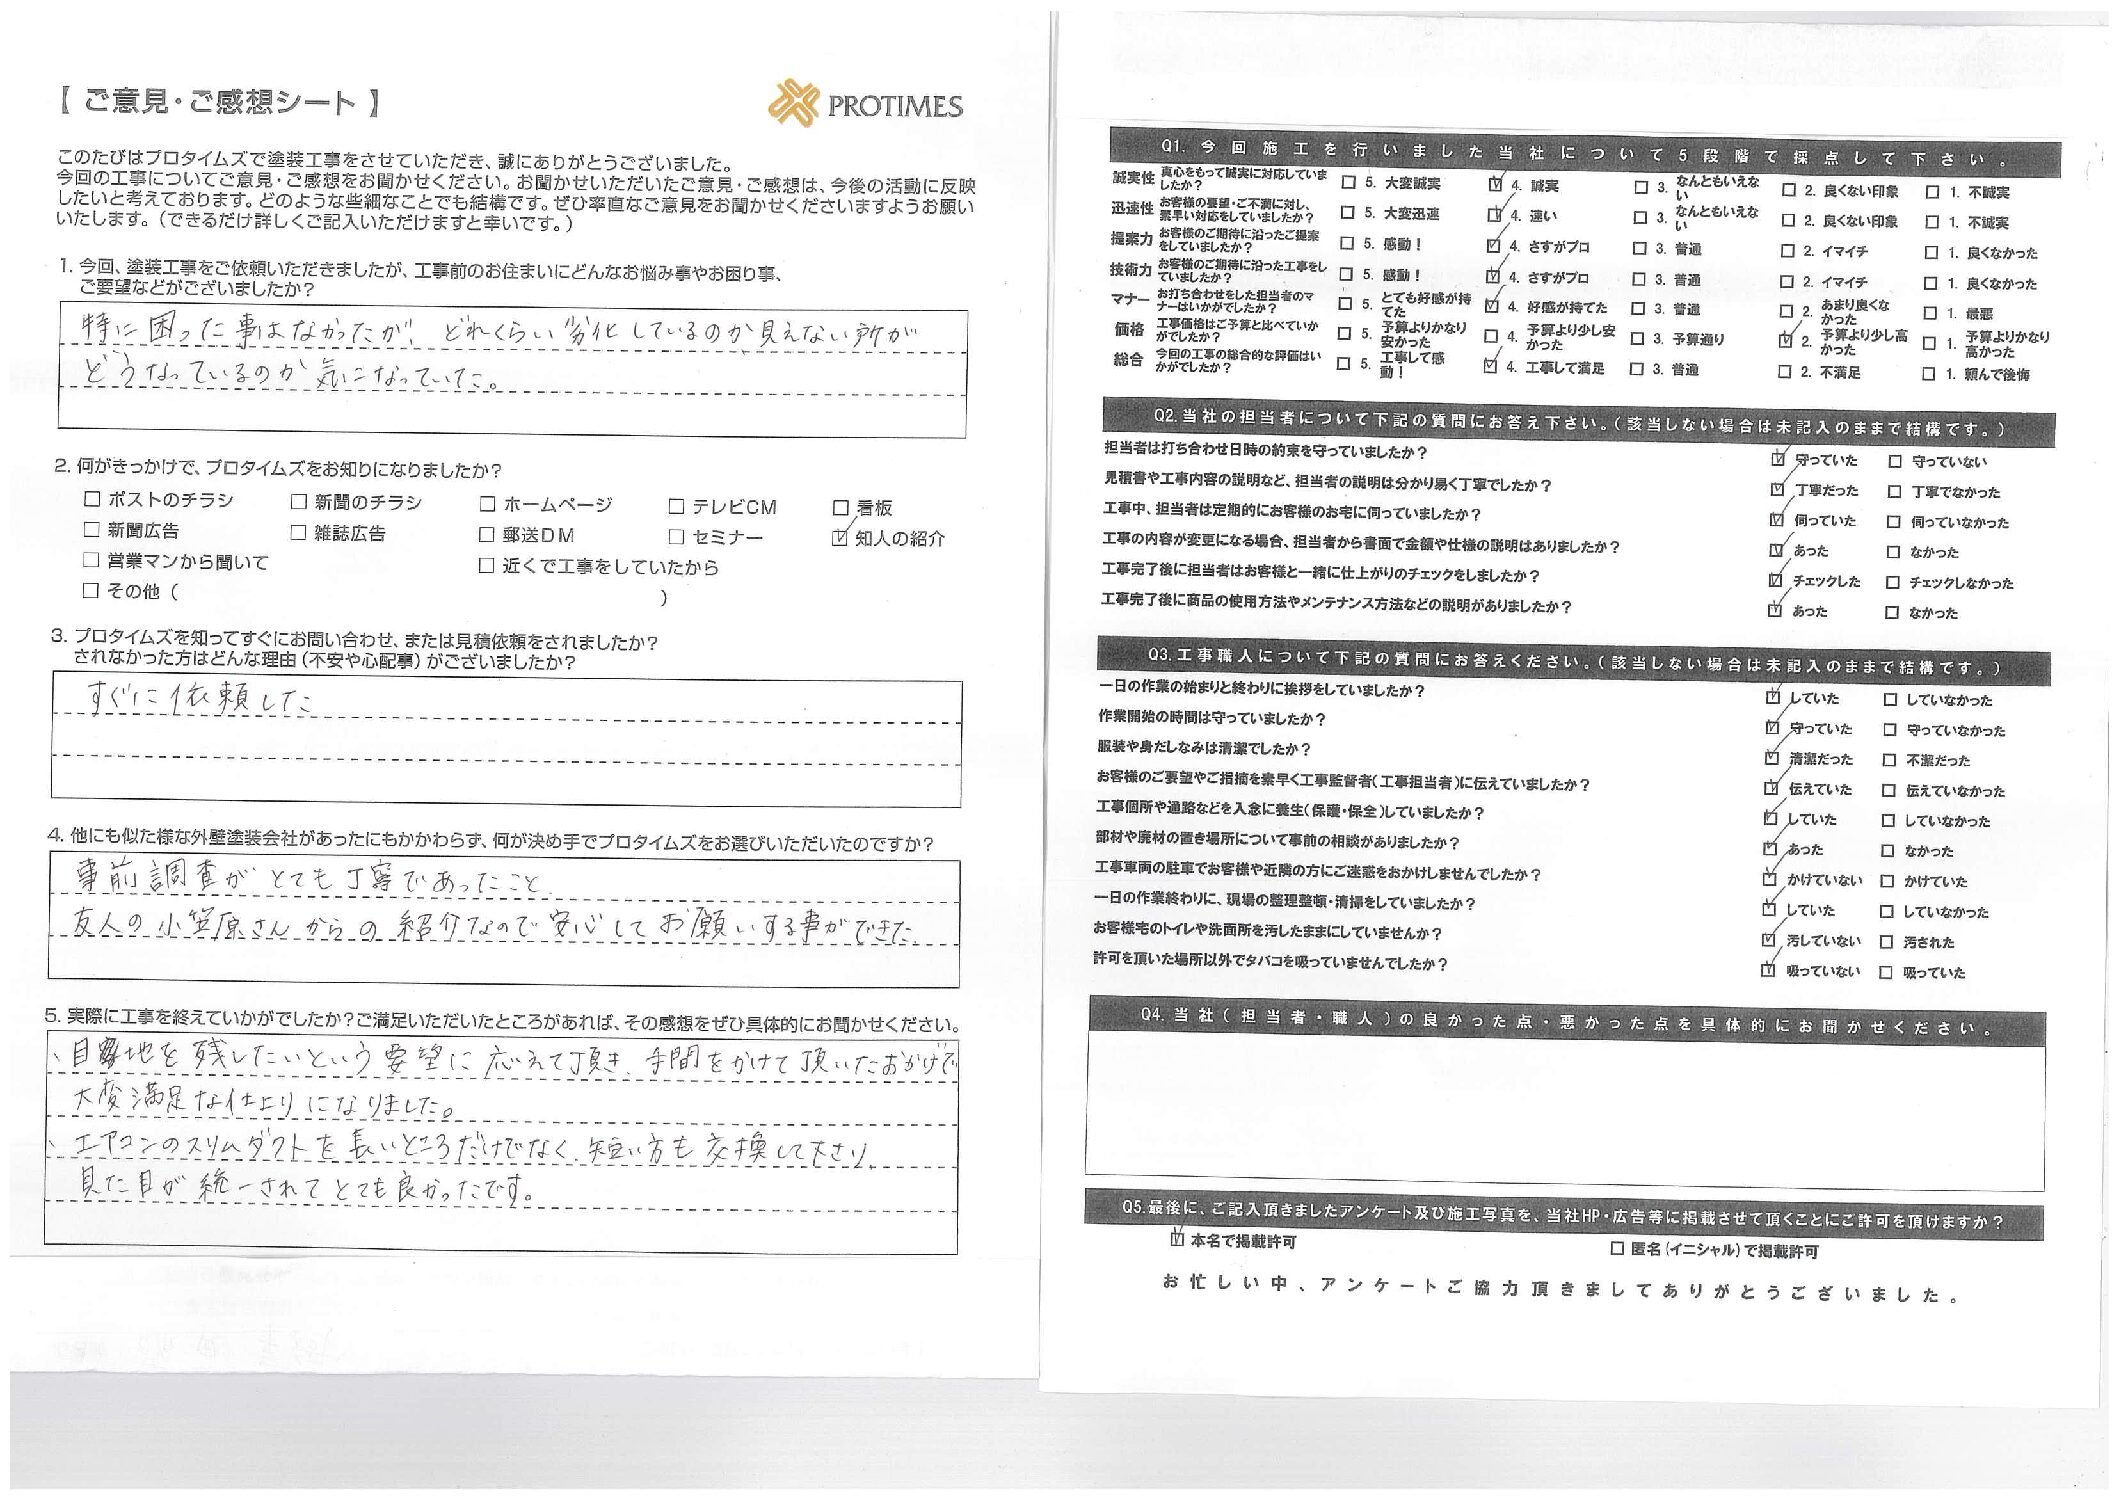 【 ご意見・ご感想シート 】
PROTIMES
このたびはプロタイムズで塗装工事をさせていただき、誠にありがとうございました。
今回の工事についてご意見・ご感想をお聞かせください。お聞かせいただいたご意見・ご感想は、今後の活動に反映
したいと考えております。どのような些細なことでも結構です。ぜひ率直なご意見をお聞かせくださいますようお願い
いたします。（できるだけ詳しくご記入いただけますと幸いです。）
1. 今回、塗装工事をご依頼いただきましたが、工事前のお住まいにどんなお悩み事やお困り事、
ご要望などがございましたか？
特に困った事はなかったが、どれくらい劣化しているのか見えない所が
どうなっているのか気になっていた。
2. 何がきっかけで、プロタイムズをお知りになりましたか？
□ ポストのチラシ □ 新聞のチラシ □ ホームページ □ テレビCM □ 看板
□ 新聞広告 □ 雑誌広告 □ 郵送DM □ セミナー ☑ 知人の紹介
□ 営業マンから聞いて □ 近くで工事をしていたから
□ その他（ ）
3. プロタイムズを知ってすぐにお問い合わせ、または見積依頼をされましたか？
されなかった方はどんな理由（不安や心配事）がございましたか？
すぐに依頼した
4. 他にも似た様な外壁塗装会社があったにもかかわらず、何が決め手でプロタイムズをお選びいただいたのですか？
事前調査がとても丁寧であったこと
友人の小笠原さんからの紹介なので安心してお願いする事ができた
5. 実際に工事を終えていかがでしたか？ご満足いただいたところがあれば、その感想をぜひ具体的にお聞かせください。
、目地を残したいという要望に応えて頂き、手間をかけて頂いたおかげで
大変満足な仕上りになりました。
、エアコンのスリムダクトを長いところだけでなく、短い方も交換して下さり、
見た目が統一されてとても良かったです。
Q1. 今回施工を行いました当社について5段階で採点して下さい。
誠実性 真心をもって誠実に対応していましたか？ □ 5. 大変誠実 ☑ 4. 誠実 □ 3. なんともいえない □ 2. 良くない印象 □ 1. 不誠実
迅速性 お客様の要望・ご不満に対し、素早い対応をしていましたか？ □ 5. 大変迅速 ☑ 4. 速い □ 3. なんともいえない □ 2. 良くない印象 □ 1. 不誠実
提案力 お客様のご期待に沿ったご提案をしていましたか？ □ 5. 感動！ ☑ 4. さすがプロ □ 3. 普通 □ 2. イマイチ □ 1. 良くなかった
技術力 お客様のご期待に沿った工事をしていましたか？ □ 5. 感動！ ☑ 4. さすがプロ □ 3. 普通 □ 2. イマイチ □ 1. 良くなかった
マナー お打ち合わせをした担当者のマナーはいかがでしたか？ □ 5. とても好感が持てた ☑ 4. 好感が持てた □ 3. 普通 □ 2. あまり良くなかった □ 1. 最悪
価格 工事価格はご予算と比べていかがでしたか？ □ 5. 予算よりかなり安かった □ 4. 予算より少し安かった □ 3. 予算通り ☑ 2. 予算より少し高かった □ 1. 予算よりかなり高かった
総合 今回の工事の総合的な評価はいかがでしたか？ □ 5. 工事して感動！ ☑ 4. 工事して満足 □ 3. 普通 □ 2. 不満足 □ 1. 頼んで後悔
Q2. 当社の担当者について下記の質問にお答え下さい。（該当しない場合は未記入のままで結構です。）
担当者は打ち合わせ日時の約束を守っていましたか？ ☑ 守っていた □ 守っていない
見積書や工事内容の説明など、担当者の説明は分かり易く丁寧でしたか？ ☑ 丁寧だった □ 丁寧でなかった
工事中、担当者は定期的にお客様のお宅に伺っていましたか？ ☑ 伺っていた □ 伺っていなかった
工事の内容が変更になる場合、担当者から書面で金額や仕様の説明はありましたか？ ☑ あった □ なかった
工事完了後に担当者はお客様と一緒に仕上がりのチェックをしましたか？ ☑ チェックした □ チェックしなかった
工事完了後に商品の使用方法やメンテナンス方法などの説明がありましたか？ ☑ あった □ なかった
Q3. 工事職人について下記の質問にお答えください。（該当しない場合は未記入のままで結構です。）
一日の作業の始まりと終わりに挨拶をしていましたか？ ☑ していた □ していなかった
作業開始の時間は守っていましたか？ ☑ 守っていた □ 守っていなかった
服装や身だしなみは清潔でしたか？ ☑ 清潔だった □ 不潔だった
お客様のご要望やご指摘を素早く工事監督者（工事担当者）に伝えていましたか？ ☑ 伝えていた □ 伝えていなかった
工事個所や通路などを入念に養生（保護・保全）していましたか？ ☑ していた □ していなかった
部材や廃材の置き場所について事前の相談がありましたか？ ☑ あった □ なかった
工事車両の駐車でお客様や近隣の方にご迷惑をおかけしませんでしたか？ ☑ かけていない □ かけていた
一日の作業終わりに、現場の整理整頓・清掃をしていましたか？ ☑ していた □ していなかった
お客様宅のトイレや洗面所を汚したままにしていませんか？ ☑ 汚していない □ 汚された
許可を頂いた場所以外でタバコを吸っていませんでしたか？ ☑ 吸っていない □ 吸っていた
Q4. 当社（担当者・職人）の良かった点・悪かった点を具体的にお聞かせください。
Q5. 最後に、ご記入頂きましたアンケート及び施工写真を、当社HP・広告等に掲載させて頂くことにご許可を頂けますか？
☑ 本名で掲載許可 □ 匿名（イニシャル）で掲載許可
お忙しい中、アンケートご協力頂きましてありがとうございました。